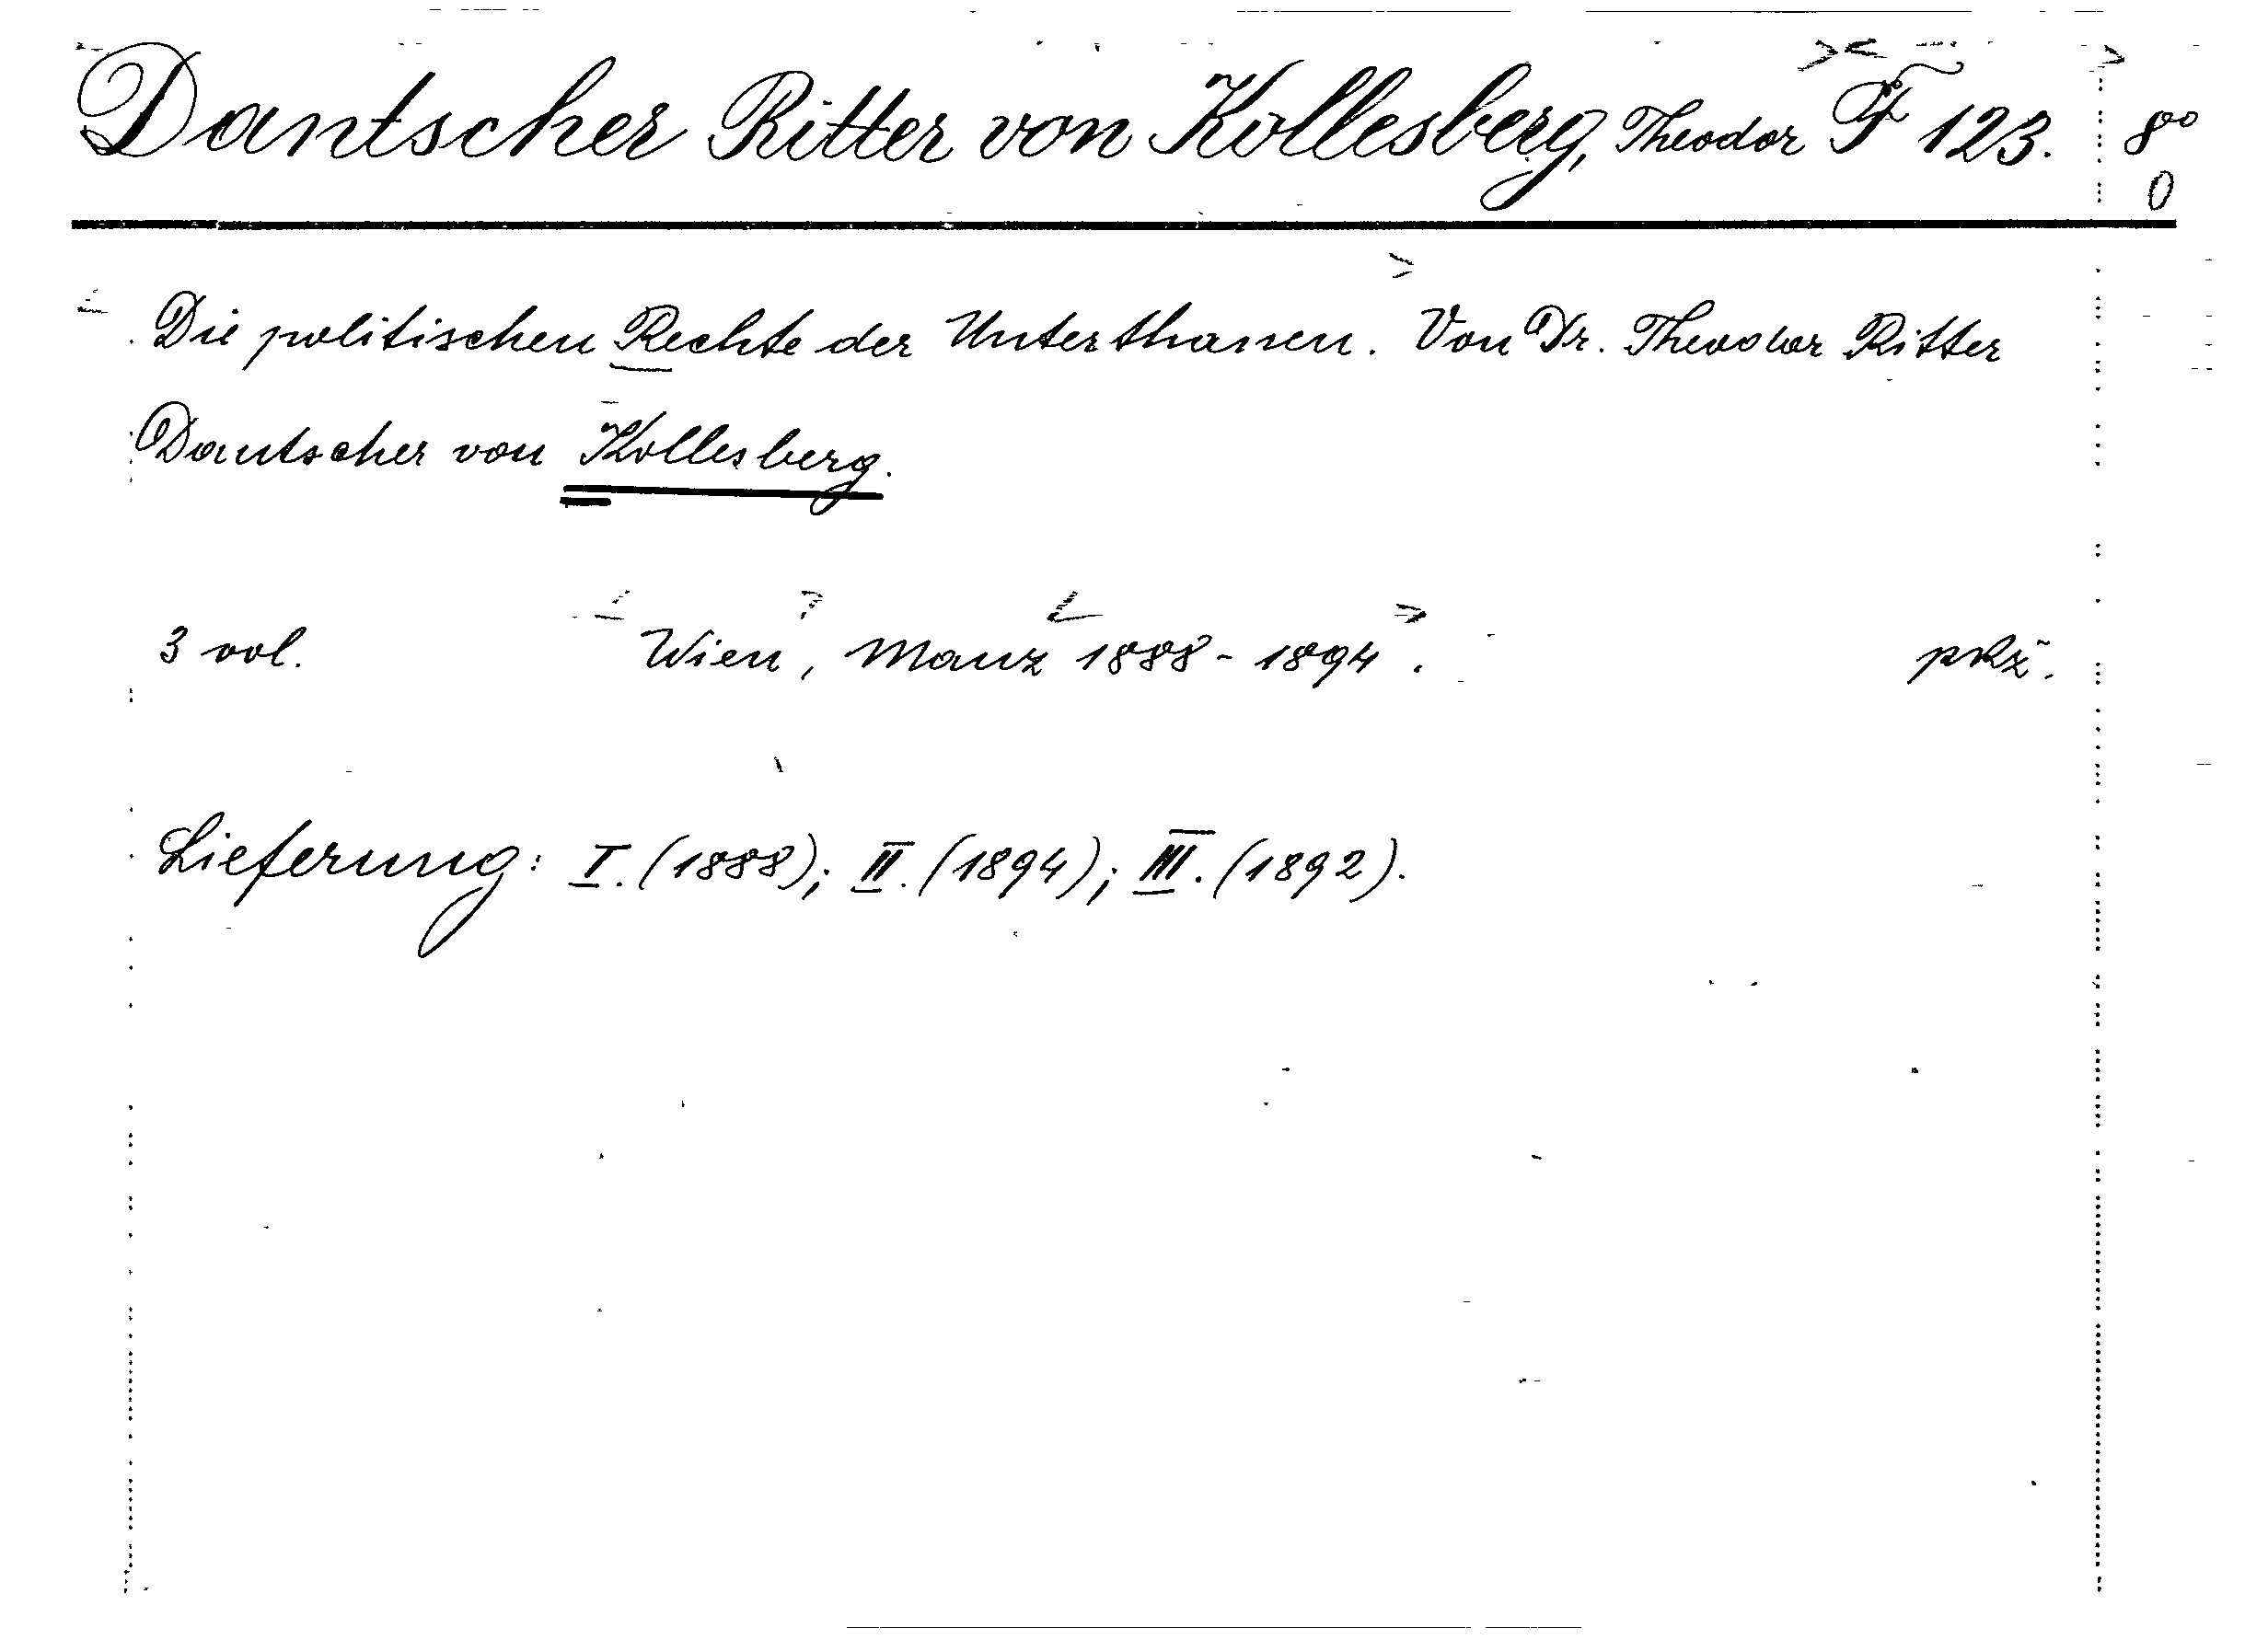 Dantscher Ritter von Kollesberg, Theodor F 123. 8⁰
0
Die politischen Rechte der Unterthanen. Von Dr. Theodor Ritter
Dantscher von Kollesberg.
3 vol. Wien, Manz 1888-1894.
Lieferung: I. (1888); II. (1894); III. (1892).